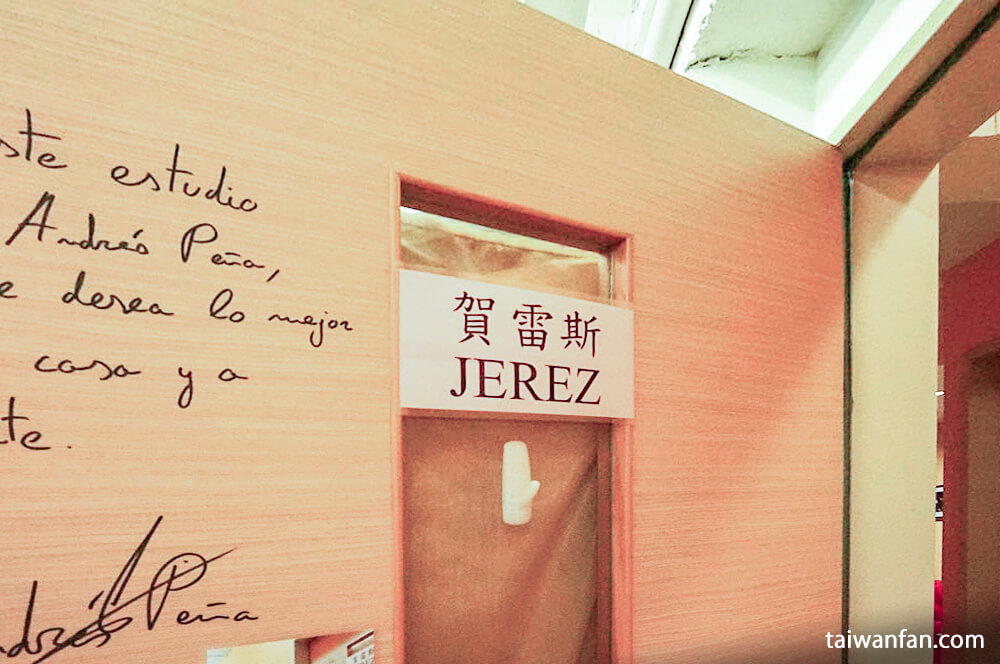 ste estudio
Andrés Peña,
e desea lo mejor
casa y a
te.
賀雷斯
JEREZ
ndrés Peña
taiwanfan.com